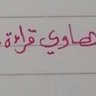 هاوي قراءة